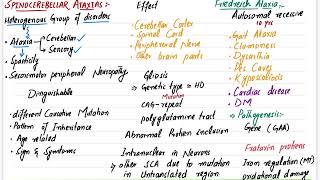 SPINOCEREBELLAR ATAXIAS:
Heterogenous Group of disorders
→ Ataxia → Cerebellar
→ Sensory
→ Spasticity
→ Sensorimotor peripheral Neuropathy
Dinguishable
→ different Causative Mutation
→ Pattern of Inheritance
→ Age related
→ Sign & Symptoms
Effect
• Cerebellar Cortex
• Spinal Cord
• Peripheral Nerve
• Other brain parts
Gliosis
→ Genetic type → HD
Mutation
CAG-repeat
polyglutamine tract
Abnormal Protein enclusion
Intranuclear in Neurons
→ other SCA due to mutation
in Untranslated region
Friedreich Ataxia:
Autosomal recessive
• Gait Ataxia
• Clumsiness
• Dysarthia
• Pes Caves
• Kyposcoliosis
• Cardiac disease
• DM
• Pathogenesis:-
Gene (GAA)
Frataxin protiens
Iron regulation (MT)
oxidational damage